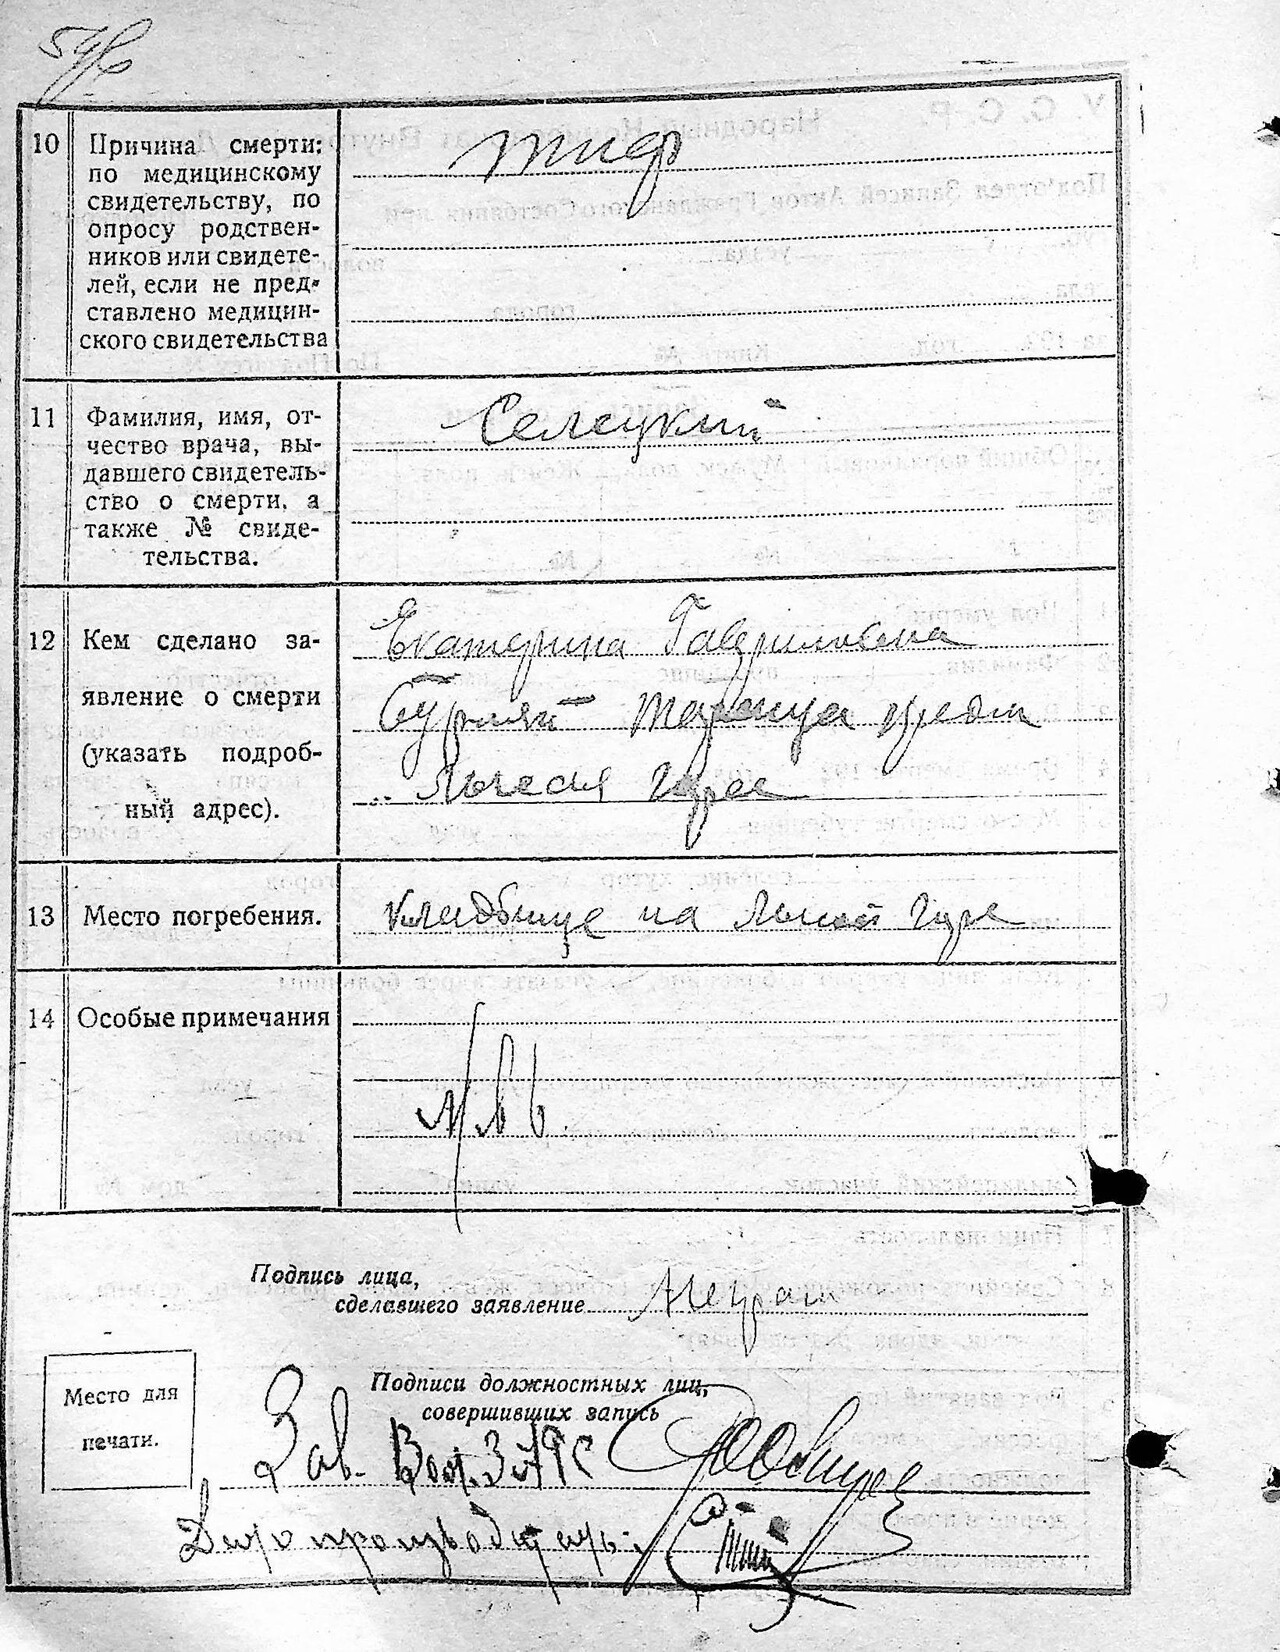 10 Причина смерти:
по медицинскому
свидетельству, по
опросу родствен-
ников или свидете-
лей, если не пред-
ставлено медицин-
ского свидетельства
тиф
11 Фамилия, имя, от-
чество врача, вы-
давшего свидетель-
ство о смерти, а
также № свиде-
тельства.
Селецкий
12 Кем сделано за-
явление о смерти
(указать подроб-
ный адрес).
Екатерина Гавриловна
13 Место погребения.
Кладбище на Лысой Горе
14 Особые примечания
Подпись лица,
сделавшего заявление
Подписи должностных лиц,
совершивших запись
Место для
печати.
Зав. ЗАГС
Делопроизводитель: